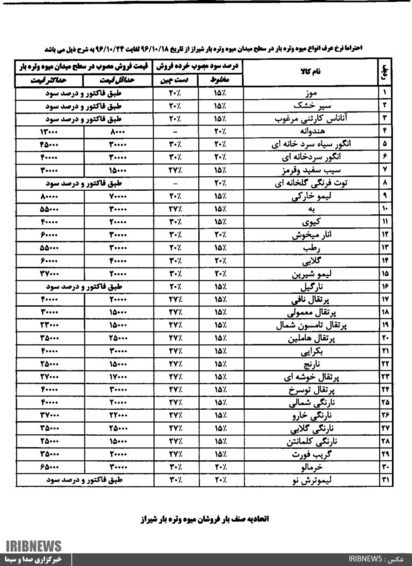 احتراما نرخ عرف انواع میوه وتره بار در سطح میدان میوه وتره بار شیراز از تاریخ ۹۶/۱۰/۱۸ لغایت ۹۶/۱۰/۲۴ به شرح ذیل می باشد
ردیف نام کالا درصد سود مصوب خرده فروش قیمت فروش مصوب در سطح میدان میوه وتره بار
مخلوط دست چین حداقل قیمت حداکثر قیمت
۱ موز ۱۵٪ ۲۰٪ طبق فاکتور و درصد سود
۲ سیر خشک ۱۵٪ ۲۰٪ طبق فاکتور و درصد سود
۳ آناناس کارتنی مرغوب ۱۵٪ ۲۰٪ طبق فاکتور و درصد سود
۴ هندوانه ۲۰٪ – ۸۰۰۰ ۱۳۰۰۰
۵ انگور سیاه سرد خانه ای ۱۵٪ ۳۰٪ ۳۰۰۰۰ ۴۵۰۰۰
۶ انگور سردخانه ای ۱۵٪ ۳۰٪ ۳۰۰۰۰ ۴۰۰۰۰
۷ سیب سفید وقرمز ۱۵٪ ۲۷٪ ۱۵۰۰۰ ۳۰۰۰۰
۸ توت فرنگی گلخانه ای ۲۰٪ – طبق فاکتور و درصد سود
۹ لیمو خارکی ۱۵٪ ۲۰٪ ۷۰۰۰۰ ۸۰۰۰۰
۱۰ به ۱۵٪ ۲۷٪ ۳۰۰۰۰ ۵۵۰۰۰
۱۱ کیوی ۱۵٪ ۳۰٪ ۲۰۰۰۰ ۴۰۰۰۰
۱۲ انار میخوش ۱۵٪ ۳۰٪ ۳۰۰۰۰ ۶۰۰۰۰
۱۳ رطب ۱۵٪ ۲۰٪ ۳۰۰۰۰ ۵۵۰۰۰
۱۴ گلابی ۲۰٪ ۳۰٪ ۴۰۰۰۰ ۶۰۰۰۰
۱۵ لیمو شیرین ۲۰٪ ۳۰٪ ۲۰۰۰۰ ۳۷۰۰۰
۱۶ نارگیل ۱۵٪ ۲۰٪ طبق فاکتور و درصد سود
۱۷ پرتقال نافی ۱۵٪ ۲۷٪ ۲۰۰۰۰ ۴۰۰۰۰
۱۸ پرتقال معمولی ۱۵٪ ۲۷٪ ۱۵۰۰۰ ۳۰۰۰۰
۱۹ پرتقال تامسون شمال ۱۵٪ ۲۷٪ ۱۵۰۰۰ ۲۳۰۰۰
۲۰ پرتقال هاملین ۱۵٪ ۲۷٪ ۲۵۰۰۰ ۳۵۰۰۰
۲۱ بکرایی ۱۵٪ ۲۷٪ ۳۰۰۰۰ ۴۰۰۰۰
۲۲ نارنج ۱۵٪ ۲۲٪ ۱۵۰۰۰ ۲۵۰۰۰
۲۳ پرتقال خوشه ای ۱۵٪ ۲۷٪ ۱۷۰۰۰ ۲۷۰۰۰
۲۴ پرتقال توسرخ ۱۵٪ ۲۷٪ ۳۰۰۰۰ ۴۰۰۰۰
۲۵ نارنگی شمالی ۱۵٪ ۲۷٪ ۲۰۰۰۰ ۴۰۰۰۰
۲۶ نارنگی خارو ۱۵٪ ۲۷٪ ۲۲۰۰۰ ۳۷۰۰۰
۲۷ نارنگی گلابی ۱۵٪ ۲۷٪ ۲۵۰۰۰ ۳۵۰۰۰
۲۸ نارنگی کلمانتن ۱۵٪ ۲۷٪ ۱۵۰۰۰ ۲۵۰۰۰
۲۹ گریپ فورت ۱۵٪ ۲۷٪ ۲۰۰۰۰ ۳۵۰۰۰
۳۰ خرمالو ۲۰٪ ۳۰٪ ۳۰۰۰۰ ۶۵۰۰۰
۳۱ لیموترش نو ۲۰٪ ۳۰٪ طبق فاکتور و درصد سود
اتحادیه صنف بار فروشان میوه وتره بار شیراز
IRIBNEWS
خبرگزاری صدا و سیما
عکس : IRIBNEWS